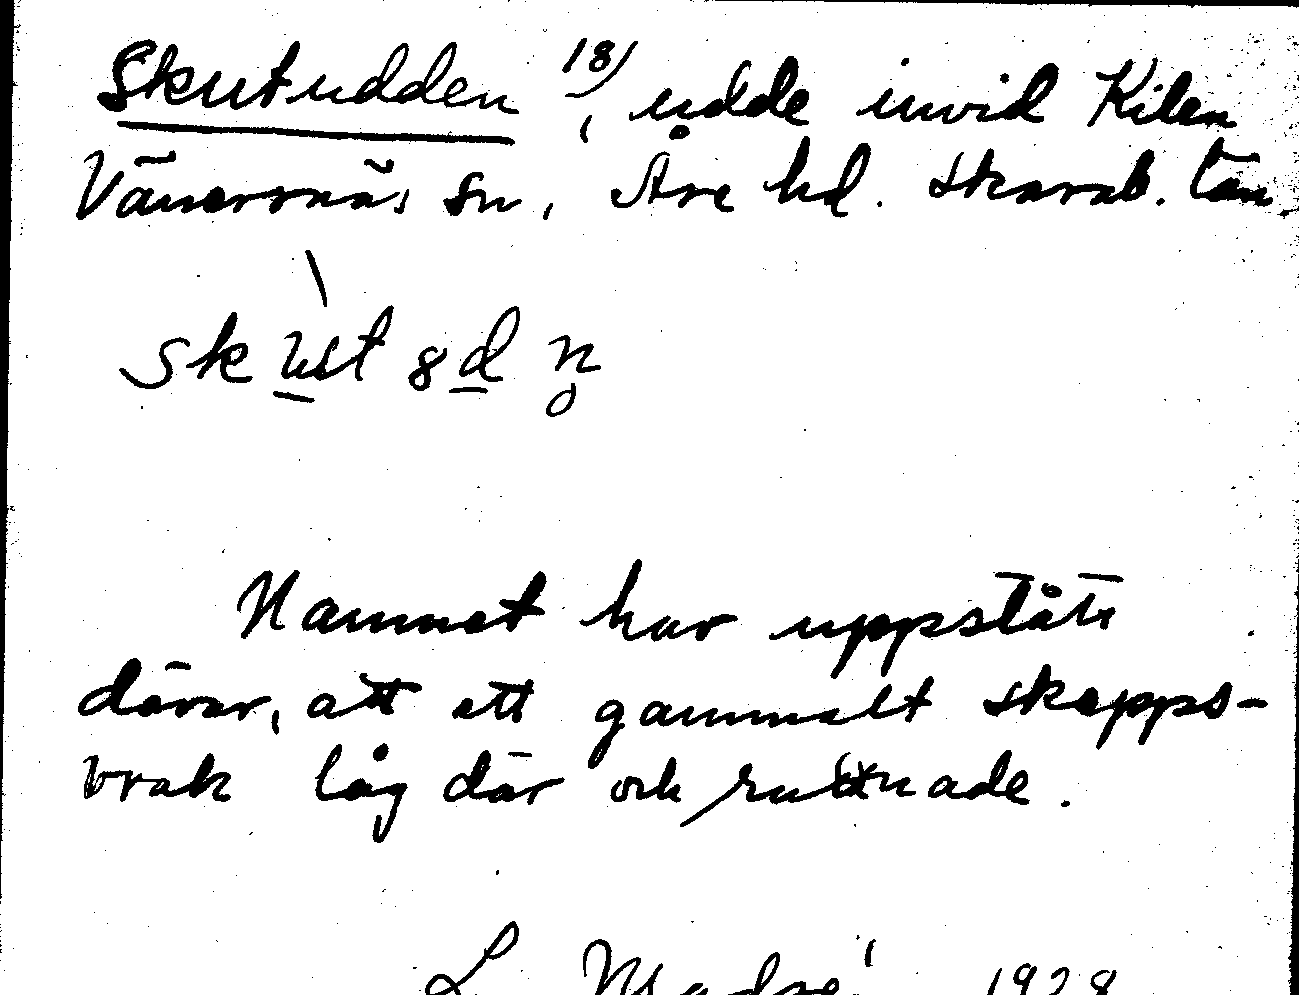 Skutudden 18), udde invid Kilen
Vänersnäs sn, Åse hd. Skarab. län
skut 8dn̥
Namnet har uppstått
därav, att ett gammalt skepps-
vrak låg där och ruttnade.
L. Modré 1928